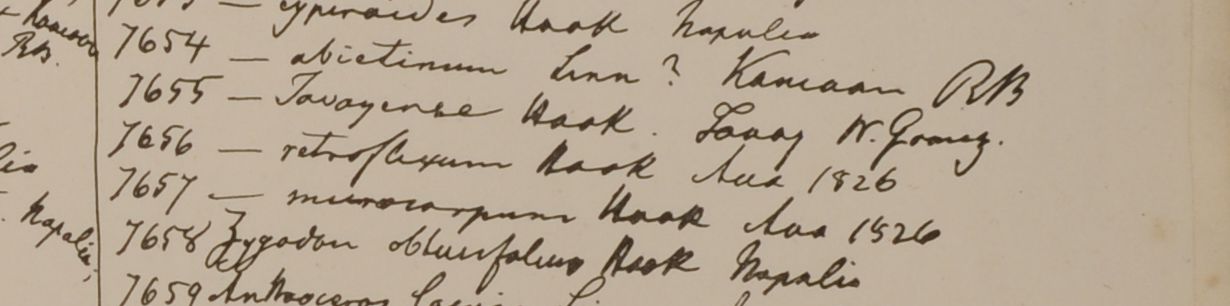 Kamaon
RB.
Napalia
— cyperoides Hook Napalia
7654 — abietinum Linn? Kamaon RB
7655 — Tavayense Hook. Tavoy W. Gomez.
7656 — retroflexum Hook Ava 1826
7657 — microcarpum Hook Ava 1826
7658 Zygodon obtusifolius Hook Napalia
7659 Anthoceros